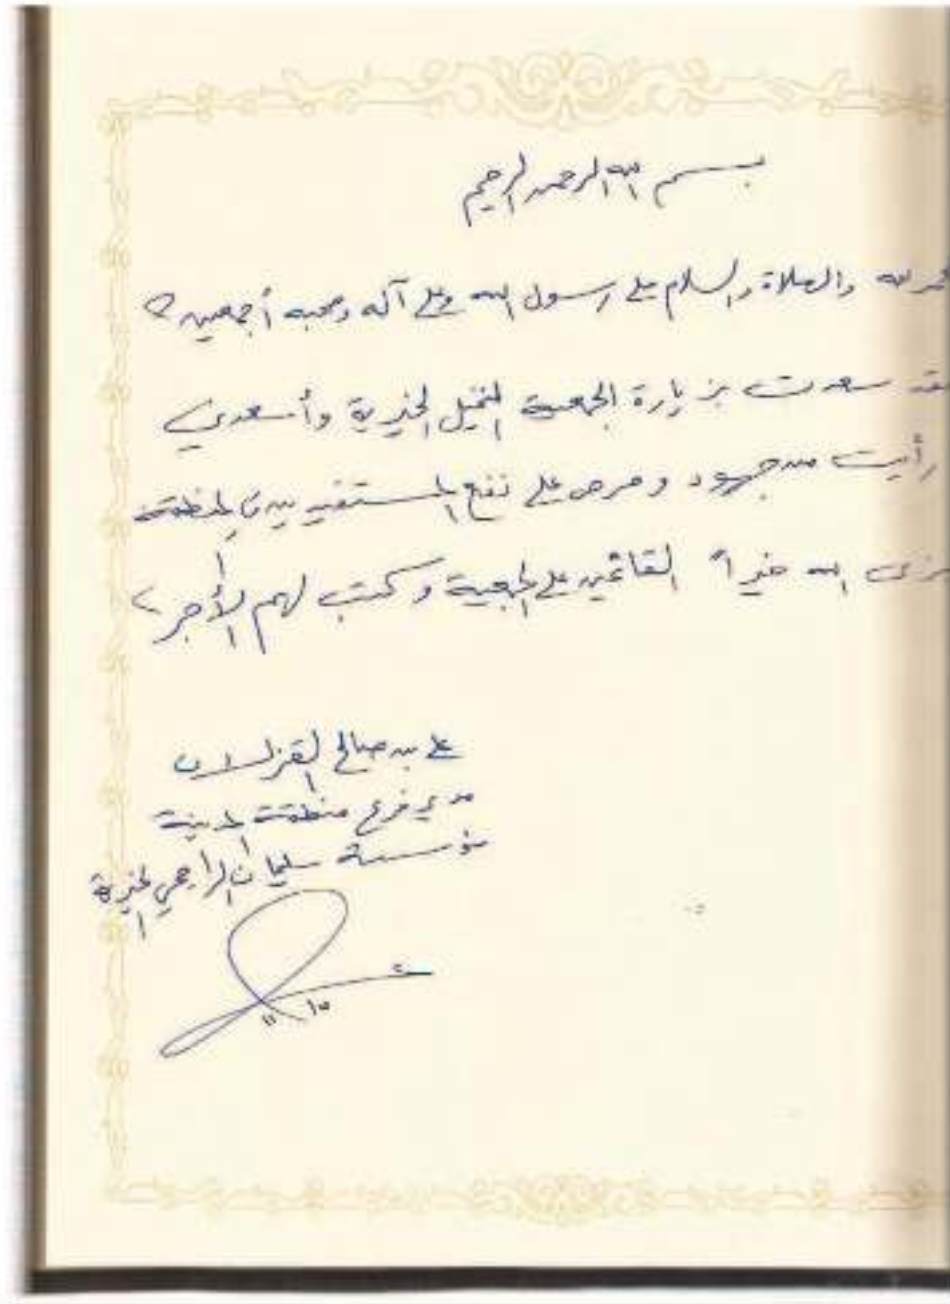 بسم الله الرحمن الرحيم
الحمد لله والصلاة والسلام على رسول الله وعلى آله وصحبه أجمعين،
لقد سعدت بزيارة الجمعية النخيل الخيرية وأسعدني
رأيت من جهود وحرص على نفع المستفيدين بالمنطقة
جزى الله خيراً القائمين على الجمعية وكتب لهم الأجر،
علي بن صالح
مدير فرع منطقة المدينة
مؤسسة سليمان الراجحي الخيرية